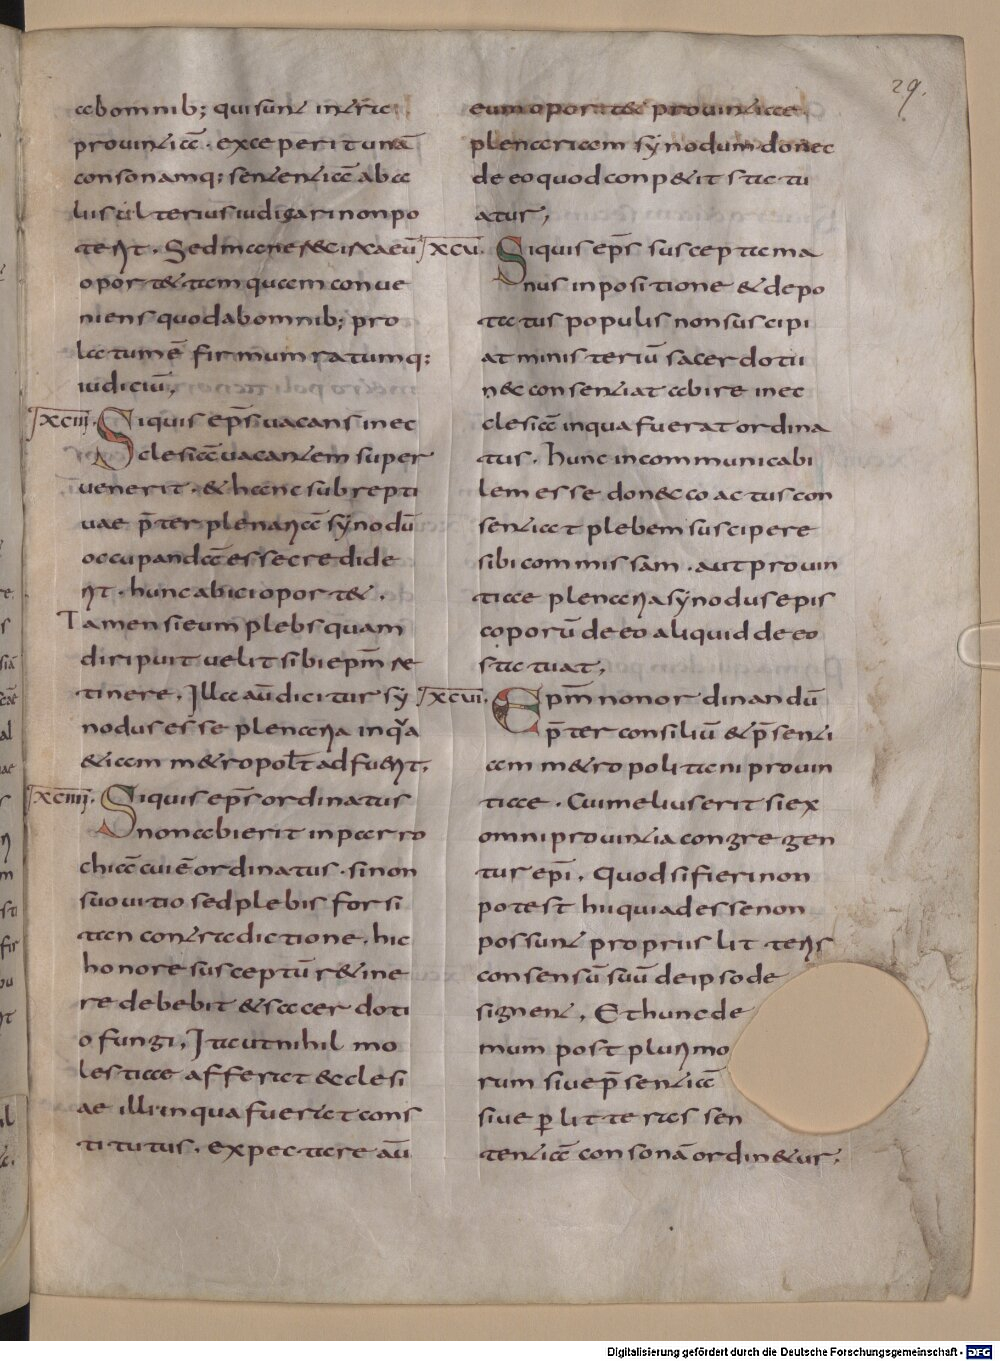 29.
ab omnib; qui sunt intra
provintiā. exceperit unā
consonamq; sententiā ab a
liis ulterius iudicari non po
terit. Sed manere & circa eū
oportet tam quam conue
niens quod ab omnib; pro
latum ē firmum ratumq;
iudiciū;
XCIII. Siquis ep̄s uacans in ec
clesiā uacantem super
uenerit. & hanc subrepti
uae p̄ter plenariā synodū
occupandā esse credide
rit. hunc abici oportet.
Tamen si eum plebs quam
diripuit uelit sibi ep̄m re
tinere. Illa aū dicitur sy
nodus esse plenaria in qua
etiam metropolt̄ adfuerit.
XCIIII. Siquis ep̄s ordinatus
non abierit in parro
chiā cui ē ordinatus. si non
suo uitio sed plebis forsi
tan contradictione. hic
honore susceptū retine
re debebit & sacerdoti
o fungi. Ita ut nihil mo
lestiae afferat ecclesi
ae illi in qua fuerat cons
titutus. expectare aū
eum oportet provintiae
plenariam synodum donec
de eo quod conpetit statu
atur;
XCV. Siquis ep̄s suscepta ma
nus inpositione & depo
tatus populis non suscipi
at ministeriū sacerdotii
nec consentiat abire in ec
clesiā in qua fuerat ordina
tus. hunc incommunicabi
lem esse donec coactus con
sentiat plebem suscipere
sibi commissam. aut prouin
tiae plenaria synodus epis
coporū de eo aliquid de eo
statuat;
XCVI. Ep̄m non ordinandū
p̄ter consiliū & p̄senti
am metropolitani prouin
tiae. Cui melius erit si ex
omni provintia congregen
tur ep̄i. Quod si fieri non
potest hii qui adesse non
possunt propriis litteris
consensū suū de ipso de
signent. Et hunc de
mum post plurimo
rum siue p̄sentiā
siue p̱ litteras sen
tentiā consonā ordinetur;
Digitalisierung gefördert durch die Deutsche Forschungsgemeinschaft - DFG